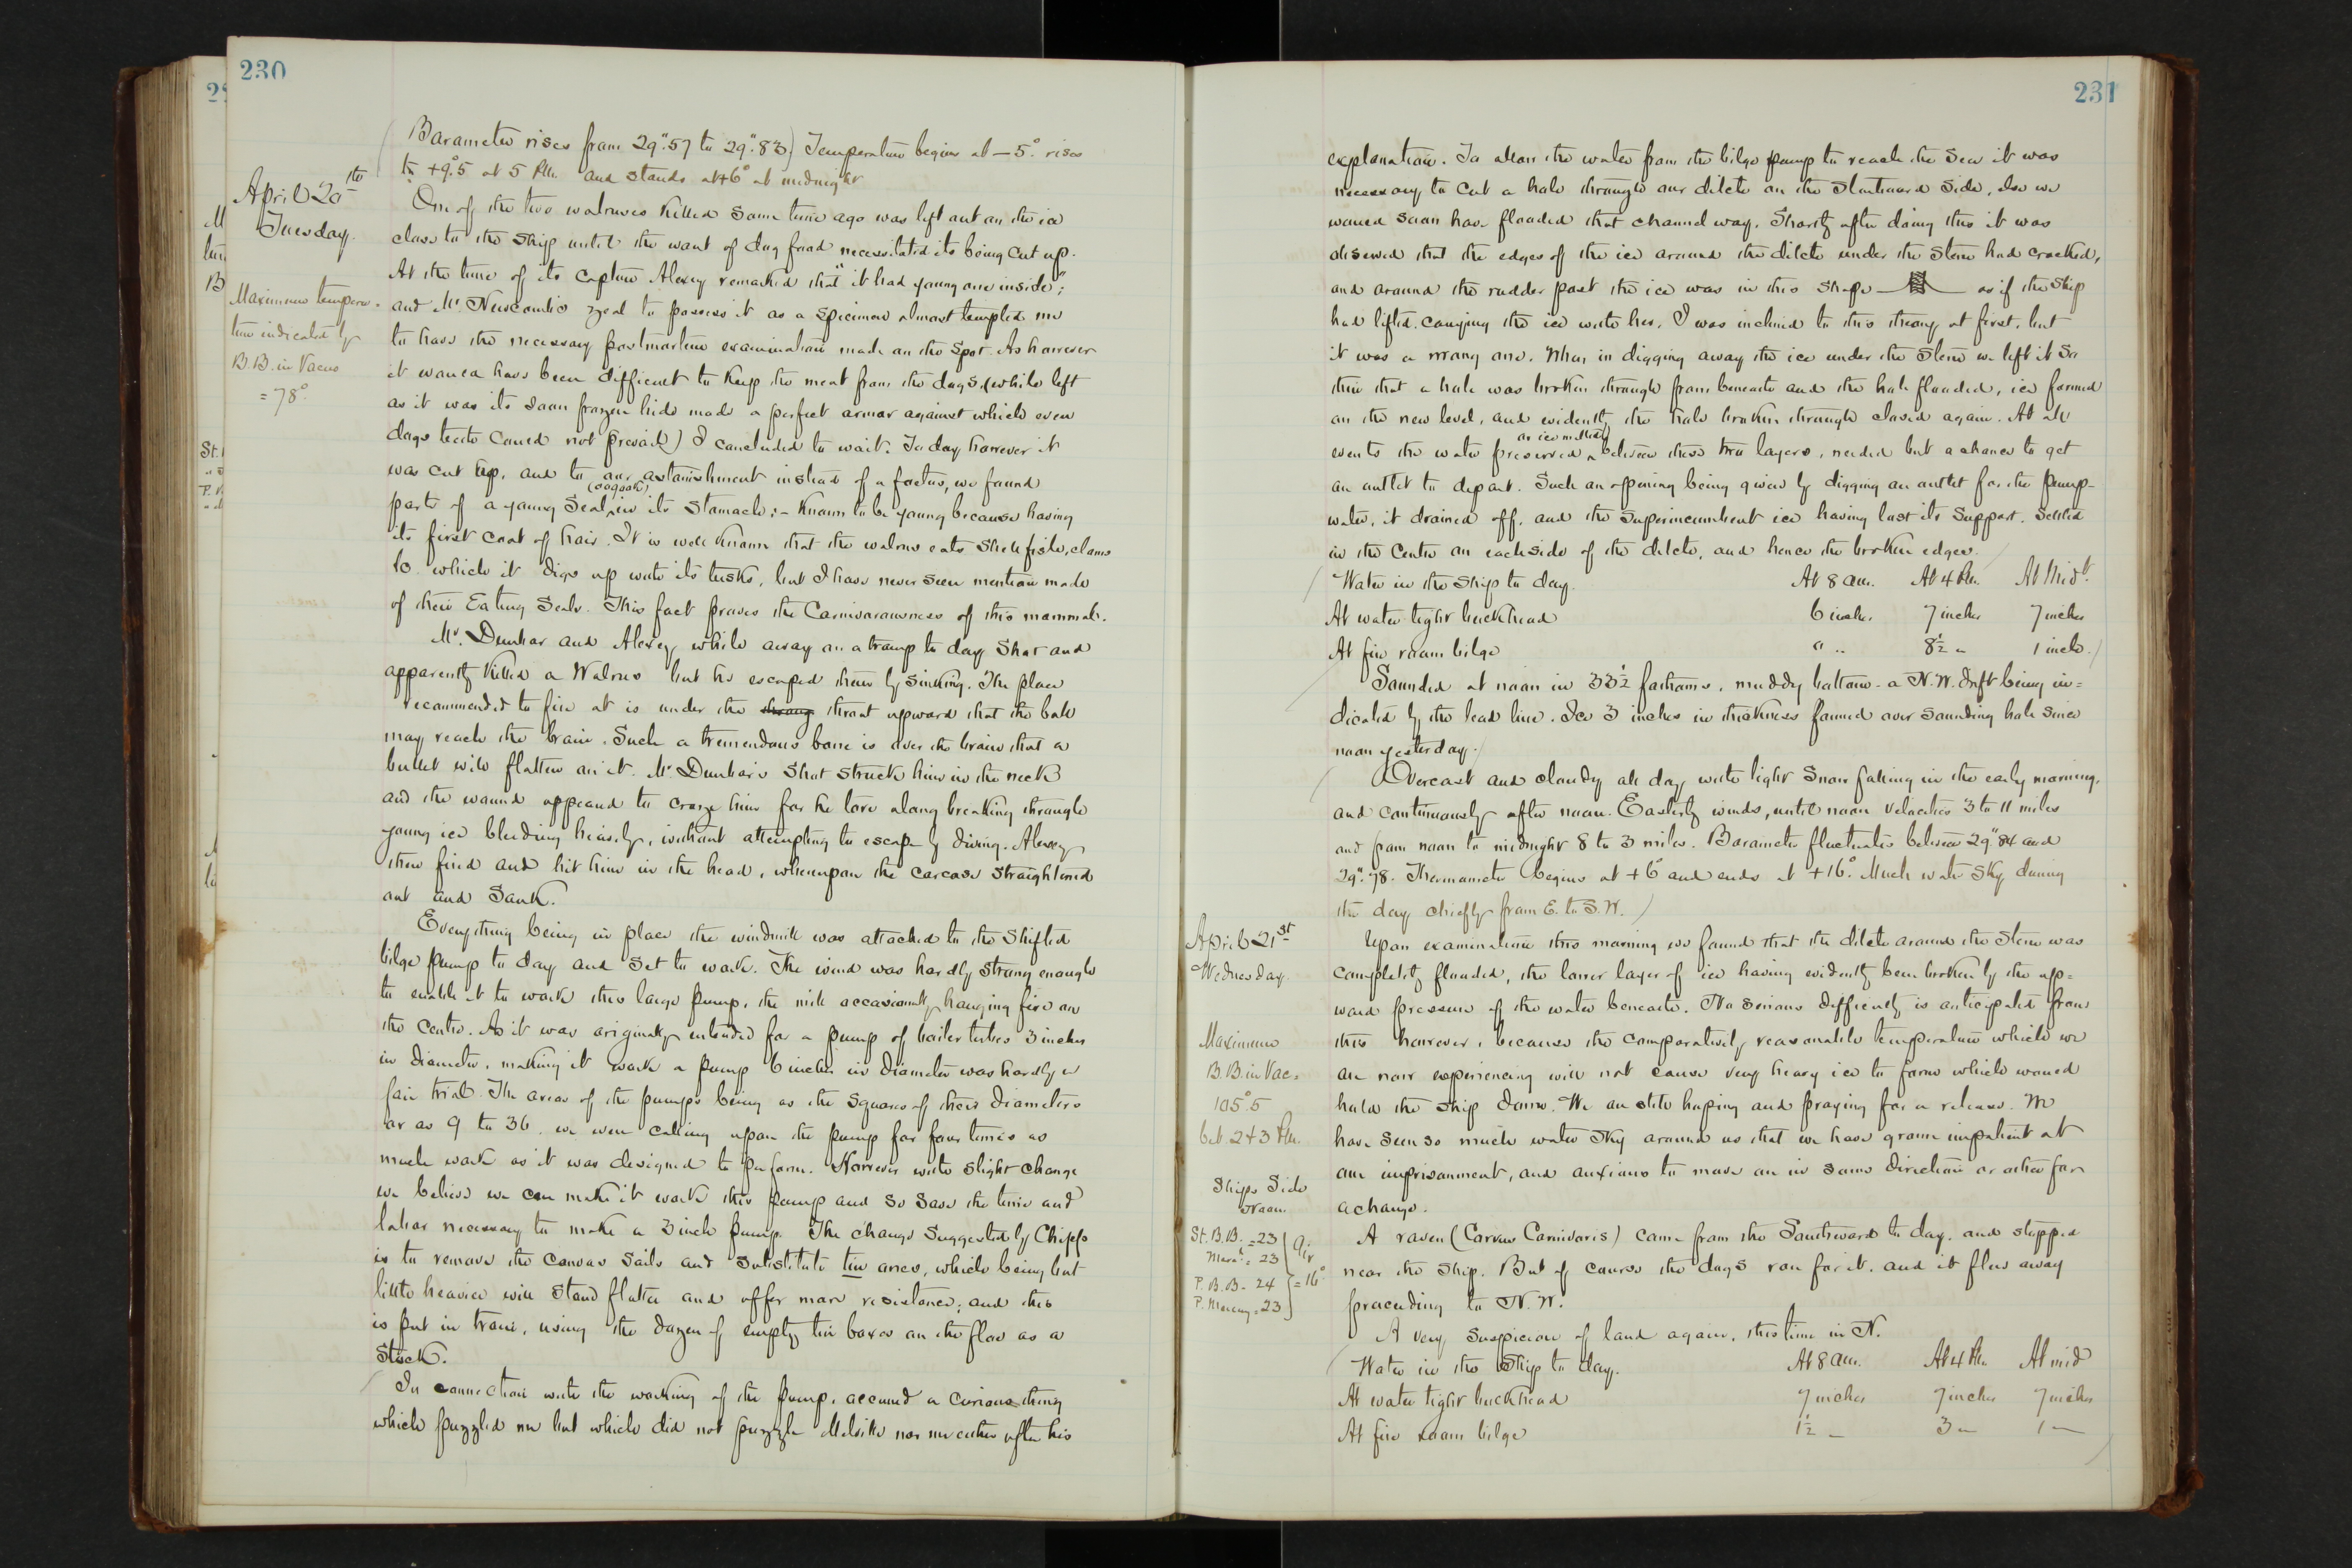 230
Barometer rises from 29".57 to 29".83) Temperature begins at -5° rises
to +9°.5 at 5 P.M. and stands at +6° at midnight
April 20th
Tuesday.
Maximum tempera-
ture indicated by
B.B. in Vacuo
= 78°.
One of the two walruses killed some time ago was left out on the ice
close to the ship until the want of dog food necessitated its being cut up.
At the time of its capture Alexey remarked that "it had young one inside";
and Mr. Newcomb's zeal to possess it as a specimen almost tempted me
to have the necessary postmortem examination made on the spot. As however
it would have been difficult to keep the meat from the dogs, (while left
as it was its soon frozen hide made a perfect armor against which even
dogs teeth could not prevail) I concluded to wait. To day however it
was cut up, and to our astonishment instead of a foetus, we found
parts of a young seal (oogook) in its stomach; - known to be young because having
its first coat of hair. It is well known that the walrus eats shell fish, clams
&c. which it digs up with its tusks, but I have never seen mention made
of their eating seals. This fact proves the carnivorousness of this mammal.
Mr. Dunbar and Alexey while away on a tramp to day shot and
apparently killed a Walrus but he escaped them by sinking. The place
recommended to fire at is under the throat upward that the ball
may reach the brain. Such a tremendous bone is over the brain that a
bullet will flatten on it. Mr Dunbar's shot struck him in the neck
and the wound appeared to craze him for he tore along breaking through
young ice bleeding heavily, without attempting to escape by diving. Alexey
then fired and hit him in the head, whereupon the carcase straightened
out and sank.
Everything being in place the windmill was attached to the shifted
bilge pump to day and set to work. The wind was hardly strong enough
to enable it to work this large pump, the mill occasionally hanging fire on
the centre. As it was originally intended for a pump of boiler tubes 3 inches
in diameter, making it work a pump 6 inches in diameter was hardly a
fair trial. The areas of the pumps being as the squares of their diameters
or as 9 to 36. we were calling upon the pump for four times as
much work as it was designed to perform. However with slight change
we believe we can make it work this pump and so save the time and
labor necessary to make a 3 inch pump. The change suggested by Chipp
is to remove the canvas sails and substitute tin ones, which being but
little heavier will stand flatter and offer more resistance; and this
is put in train, using the dozen of empty tin boxes on the floe as a
stock.
In connection with the working of the pump, occurred a curious thing
which puzzled me but which did not puzzle Melville nor me either after his
231
explanation. To allow the water from the bilge pump to reach the sea it was
necessary to cut a hole through our ditch on the starboard side, else we
would soon have flooded that channel way. Shortly after doing this it was
observed that the edges of the ice around the ditch under the stern had cracked,
and around the rudder post the ice was in this shape as if the ship
had lifted, carrying the ice with her. I was inclined to this theory at first, but
it was a wrong one. When in digging away the ice under the stern we left it so
thin that a hole was broken through from beneath and the hole flooded, ice formed
on the new level, and evidently the hole broken through closed again. At all
events the water preserved between these two layers, needed but a chance to get
an outlet to depart. Such an opening being given by digging an outlet for the pump-
water, it drained off, and the superincumbent ice having lost its support, settled
in the centre on each side of the ditch, and hence the broken edges.
Water in the ship to day. At 8 am. At 4 P.M. At Midt.
At water tight bulkhead 6 inches 7 inches 7 inches
At fire room bilge " " 8½ " 1 inch.)
Sounded at noon in 33½ fathoms, muddy bottom - a N.W. drift being in=
dicated by the lead line. Ice 3 inches in thickness formed over sounding hole since
noon yesterday.
Overcast and cloudy all day with light snow falling in the early morning,
and continuously after noon. Easterly winds, until noon velocities 3 to 11 miles
and from noon to midnight 8 to 3 miles. Barometer fluctuates between 29".84 and
29".78. Thermometer begins at +6° and ends at +16°. Much water sky during
the day chiefly from E. to S.W.)
April 21st
Wednesday.
Maximum
B.B. in Vac.
105°.5
bet. 2 & 3 P.M.
Ships Side
Noon.
St. B.B. = 23
Merc'l. = 23
P. B.B. = 24
P. Mercury = 23
Air
= 16°
Upon examination this morning we found that the ditch around the stern was
completely flooded, the lower layer of ice having evidently been broken by the up=
ward pressure of the water beneath. No serious difficulty is anticipated from
this however, because the comparatively reasonable temperature which we
are now experiencing will not cause very heavy ice to form which would
hold the ship down. We are still hoping and praying for a release. We
have seen so much water sky around us that we have grown impatient at
our imprisonment, and anxious to move on in some direction or other for
a change.
A raven (Corvus Carnivoris) came from the Southward to day, and stopped
near the ship. But of course the dogs ran for it, and it flew away
proceeding to N.W.
A very suspicion of land again, this time in N.
Water in the Ship to day. At 8 am. At 4 P.M. At mid
At water tight bulkhead 7 inches 7 inches 7 inches
At fire room bilge 1½ " 3 " 1 "